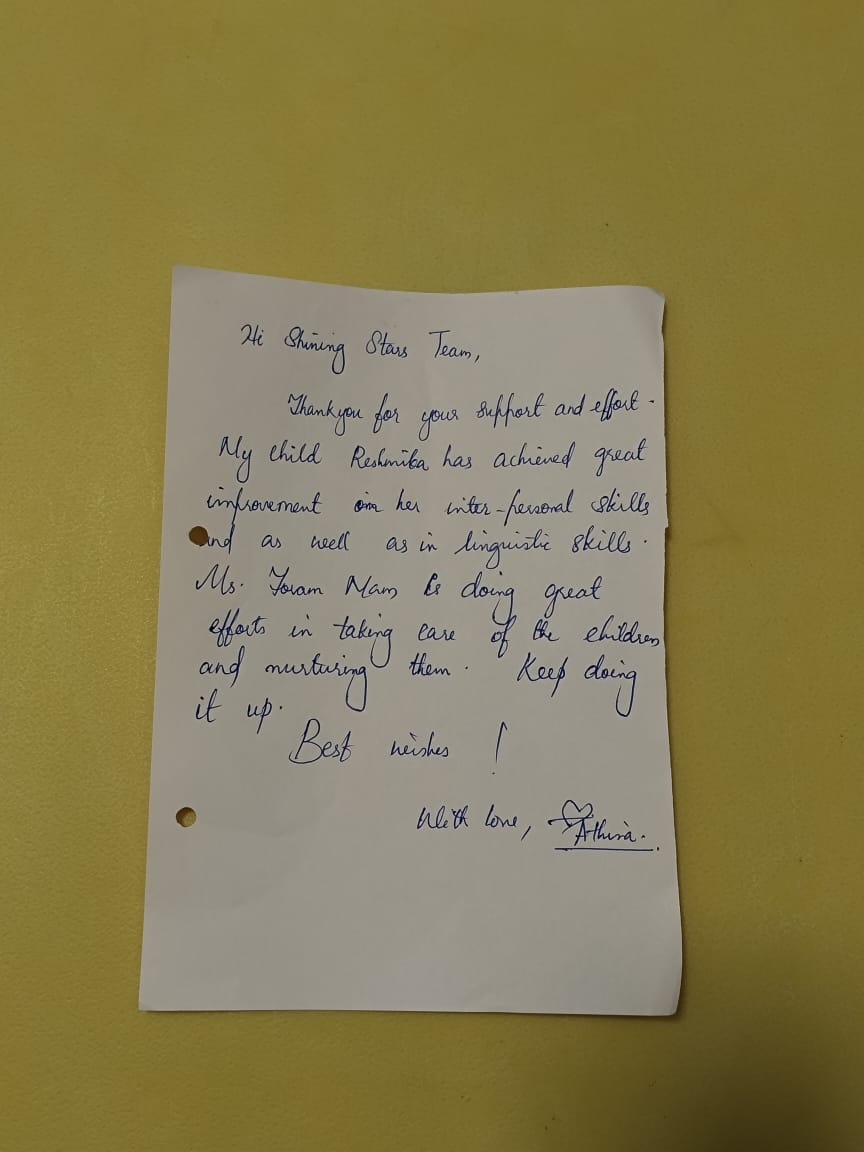 Hi Shining Stars Team,
Thankyou for your support and effort.
My child Reshmika has achieved great
improvement in her inter-personal skills
and as well as in linguistic skills.
Ms. Foram Mam is doing great
efforts in taking care of the children
and nurturing them. Keep doing
it up.
Best wishes !
With love, Athira.